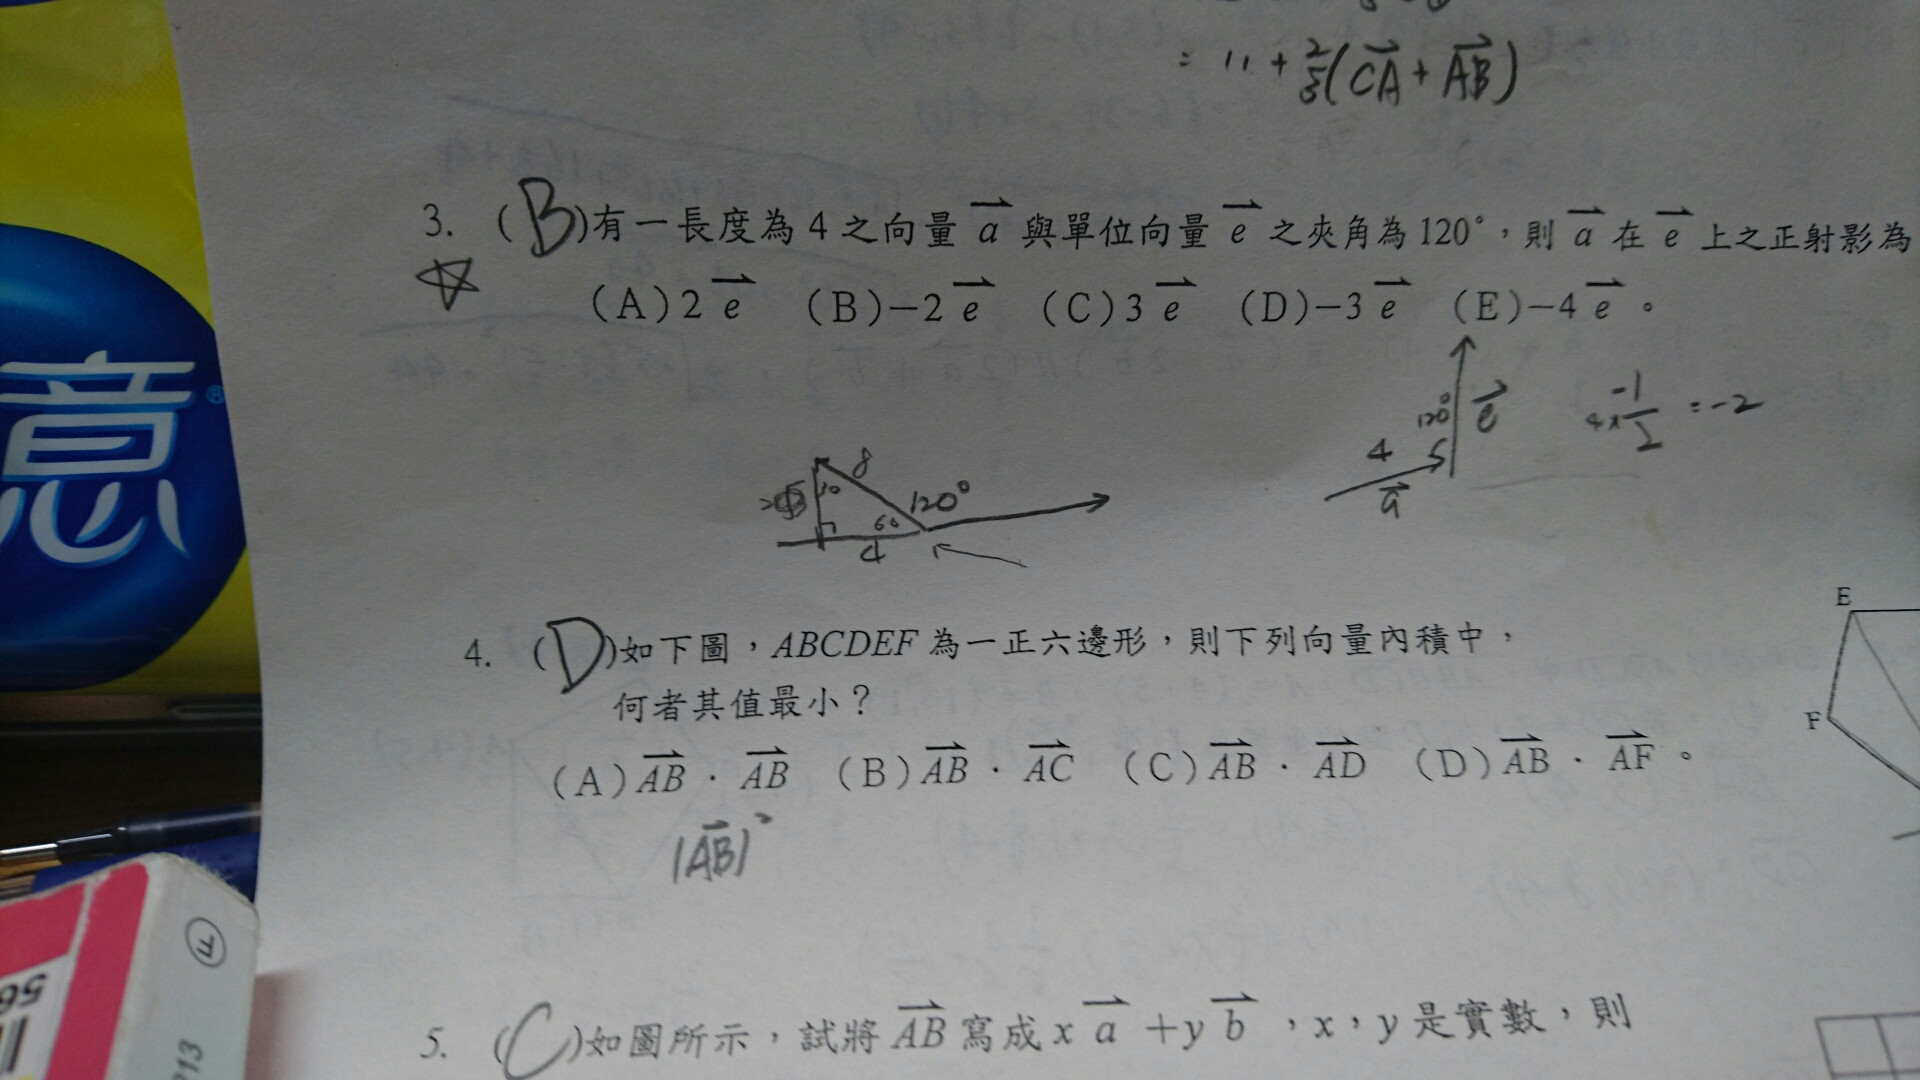 = 11 + 2/5(CA + AB)
3. (B)有一長度為 4 之向量 a 與單位向量 e 之夾角為 120°，則 a 在 e 上之正射影為
(A) 2 e (B) −2 e (C) 3 e (D) −3 e (E) −4 e 。
意®
120° e
4×-1/2 = -2
4
a
8
120°
60
4
E
4. (D)如下圖，ABCDEF 為一正六邊形，則下列向量內積中，
何者其值最小？
F
(A) AB · AB (B) AB · AC (C) AB · AD (D) AB · AF 。
|AB|²
5. (C)如圖所示，試將 AB 寫成 x a + y b ，x，y 是實數，則